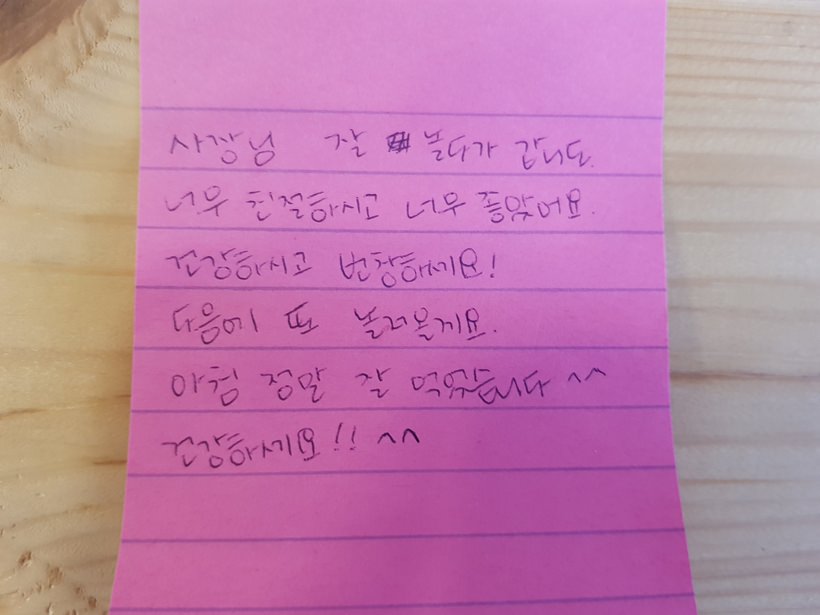 사장님 잘 놀다가 갑니다.
너무 친절하시고 너무 좋았어요.
건강하시고 번창하세요!
다음에 또 놀러올게요.
아침 정말 잘 먹었습니다 ^^
건강하세요!! ^^